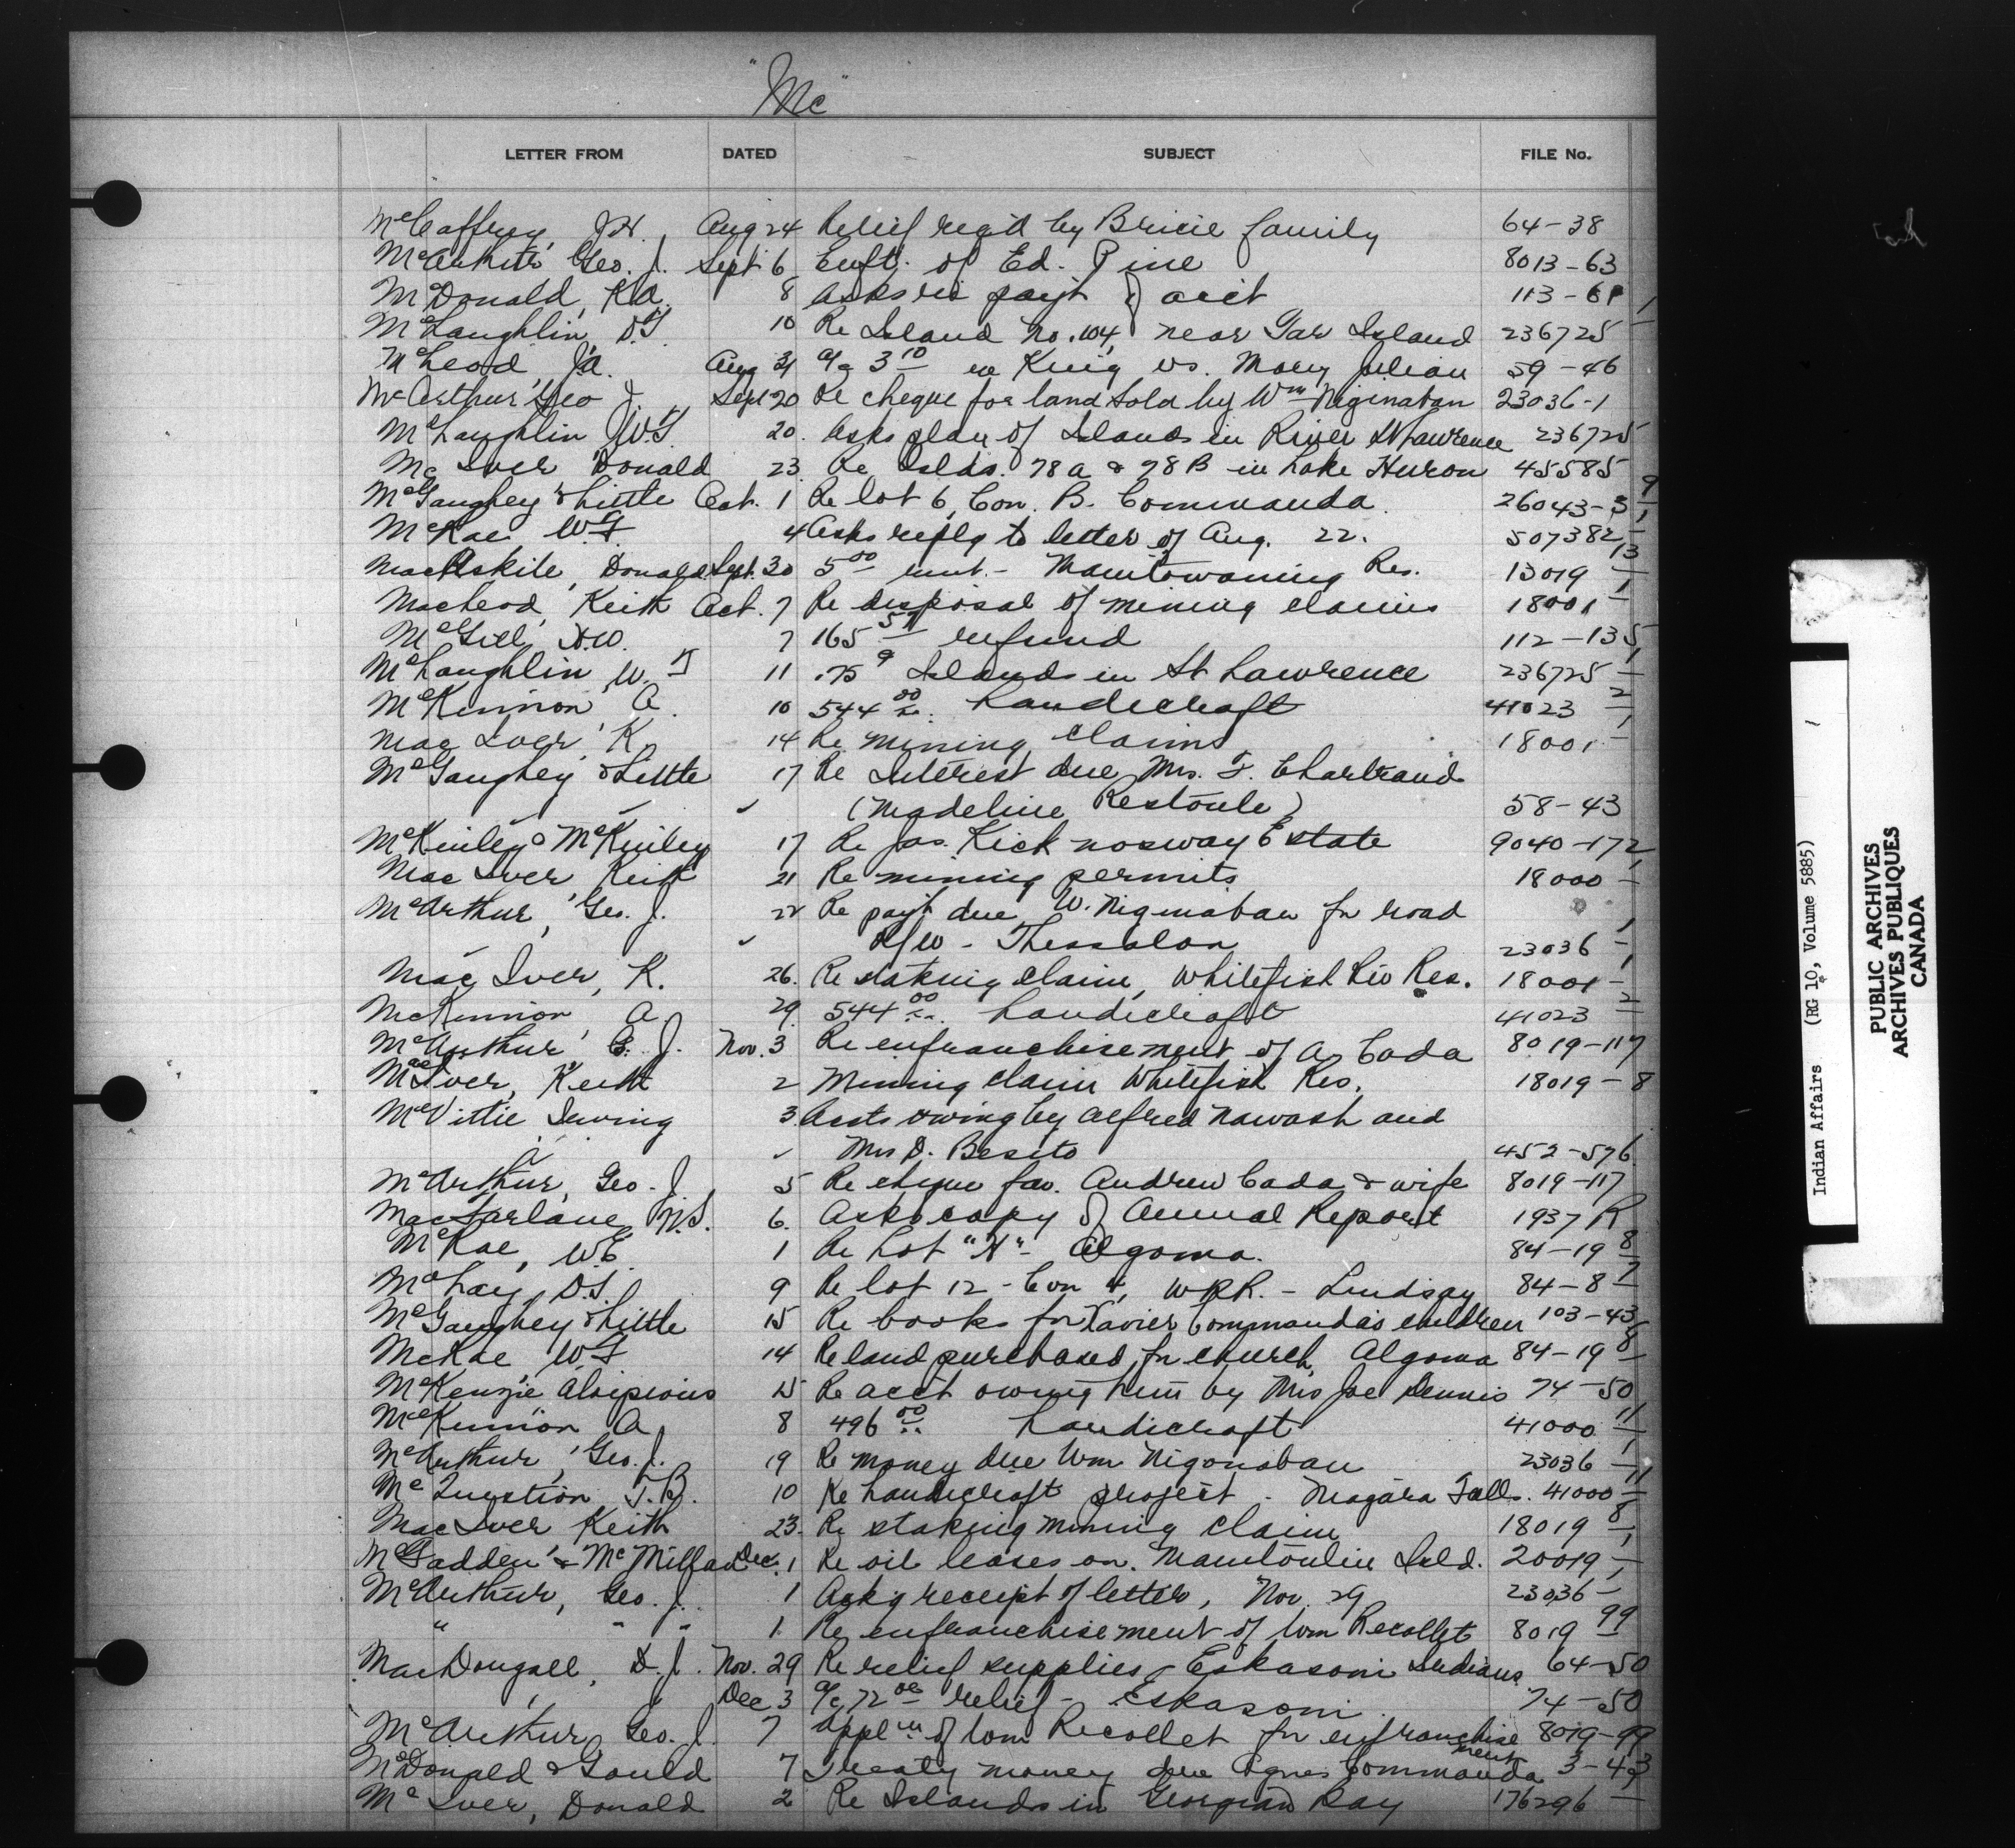 "Mc"
LETTER FROM DATED SUBJECT FILE No.
McCaffrey, J.H. Aug 24 Relief req'd by family 64-38
McArthur Geo. J. Sept 6 Enft. of Ed. Pine 8013-63
McDonald, R.A. 8 Asks re pay't of acc't 113-61
McLaughlin, 10 Re Island No. 104, near Tar Island 236725-1
McLeod, J.A. Aug 31 a/c 3 10 re King vs. Mary Julian 59-46
McArthur Geo J. Sept 20 Re cheque for land sold by Wm Niginaban 23036-1
McLaughlin W.T. 20. Asks plan of Islands in River St Lawrence 236725
Mc Iver Donald 23 Re Islds. 78A & 78B in Lake Huron 45585
McGaughey & Little Oct. 1 Re lot 6, Con. B. Commanda. 26043-3
McRae W.F. 4 Asks reply to letter of Aug. 22. 507382-1
MacAskile, Donald Sept. 30 5 00 rent - Manitowaning Res. 13019-13
MacLeod, Keith Oct. 7 Re disposal of mining claims 18001-1
McGill, H.W. 7 165 51 refund 112-135
McLaughlin W. T 11 .75 Islands in St Lawrence 236725-1
McKinnon A. 10 544 00 handicraft 41023-2
Mac Iver K. 14 Re mining claims 18001-1
McGaughey & Little 17 Re Interest due Mrs. F. Chartrand
(Madeline Restoule) 58-43
McKinley & McKinley 17 Re Jas. Kicknosway Estate 9040-172
Mac Iver Keith 21 Re mining permits 18000-1
McArthur, Geo. J. 22 Re pay't due W. Niginaban for road
R/W - Thessalon 23036-1
Mac Iver, K. 26. Re staking claim, Whitefish Riv Res. 18001-1
McKinnon A 29 544 00 handicraft 41023-2
McArthur G. J. Nov. 3 Re enfranchisement of A. Cada 8019-117
MacIver, Keith 2 Mining claim Whitefish Res. 18019-8
McVittie Irving 3 Accts owing by Alfred Nawash and
Mrs D. Besito 452-576
McArthur, Geo. J. 5 Re cheque fav. Andrew Cada & wife 8019-117
MacFarlane N.S. 6. Asks copy of Annual Report 1937 R
McRae, W.E. 1 Re Lot "H" - Algoma. 84-19-8
McLay, D.S. 9 Re lot 12 - Con 4, W.B.R. - Lindsay 84-8-7
McGaughey & Little 15 Re books for Xavier Commanda's children 103-43
McRae W.F. 14 Re land purchased for church, Algoma 84-19-8
McKenzie Aloipsious 15 Re acct owing him by Mrs Joe Dennis 74-50
McKinnon A. 8 496 00 handicraft 41000-11
McArthur, Geo. J. 19 Re money due Wm Nigonaban 23036-1
McQuestion T.B. 10 Re handicraft project - Niagara Falls. 41000-11
MacIver Keith 23. Re staking mining claim 18019-8
McFadden & McMillan Dec. 1 Re oil leases on Manitoulin Isld. 20019-1
McArthur, Geo. J. 1 Ack'g receipt of letter, Nov. 29 23036-1
" " " 1. Re enfranchisement of Wm Recollet 8019-99
MacDougall, D.J. Nov. 29 Re relief supplies - Eskasoni Indians 64-50
Dec 3 a/c 72 00 relief - Eskasoni 74-50
McArthur Geo. J. 7 Appl'n of Wm Recollet for enfranchisement 8019-99
McDonald & Gould 7 Treaty money due Agnes Commanda 3-43
McIver, Donald 2 Re Islands in Georgian Bay 176296-
Indian Affairs (RG 10, Volume 5885)
PUBLIC ARCHIVES
ARCHIVES PUBLIQUES
CANADA